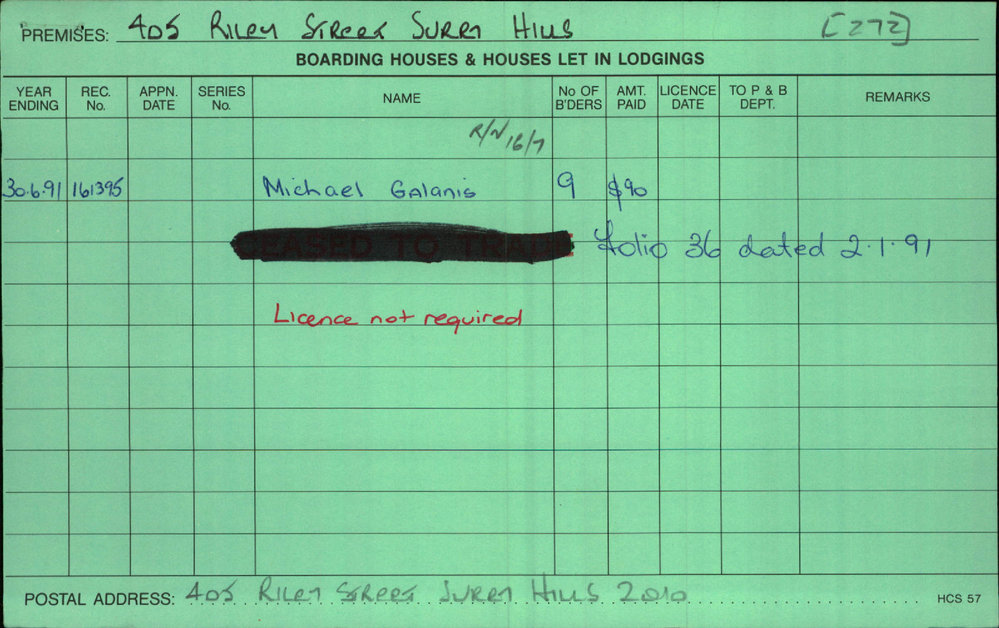 PREMISES: 405 Riley Street Surry Hills [272]
BOARDING HOUSES & HOUSES LET IN LODGINGS
YEAR ENDING REC. No. APPN. DATE SERIES No. NAME No OF B'DERS AMT. PAID LICENCE DATE TO P & B DEPT. REMARKS
R/N 16/7
30.6.91 161395 Michael Galanis 9 $90
CEASED TO TRADE folio 36 dated 2.1.91
Licence not required
POSTAL ADDRESS: 405 Riley Street Surry Hills 2010 HCS 57